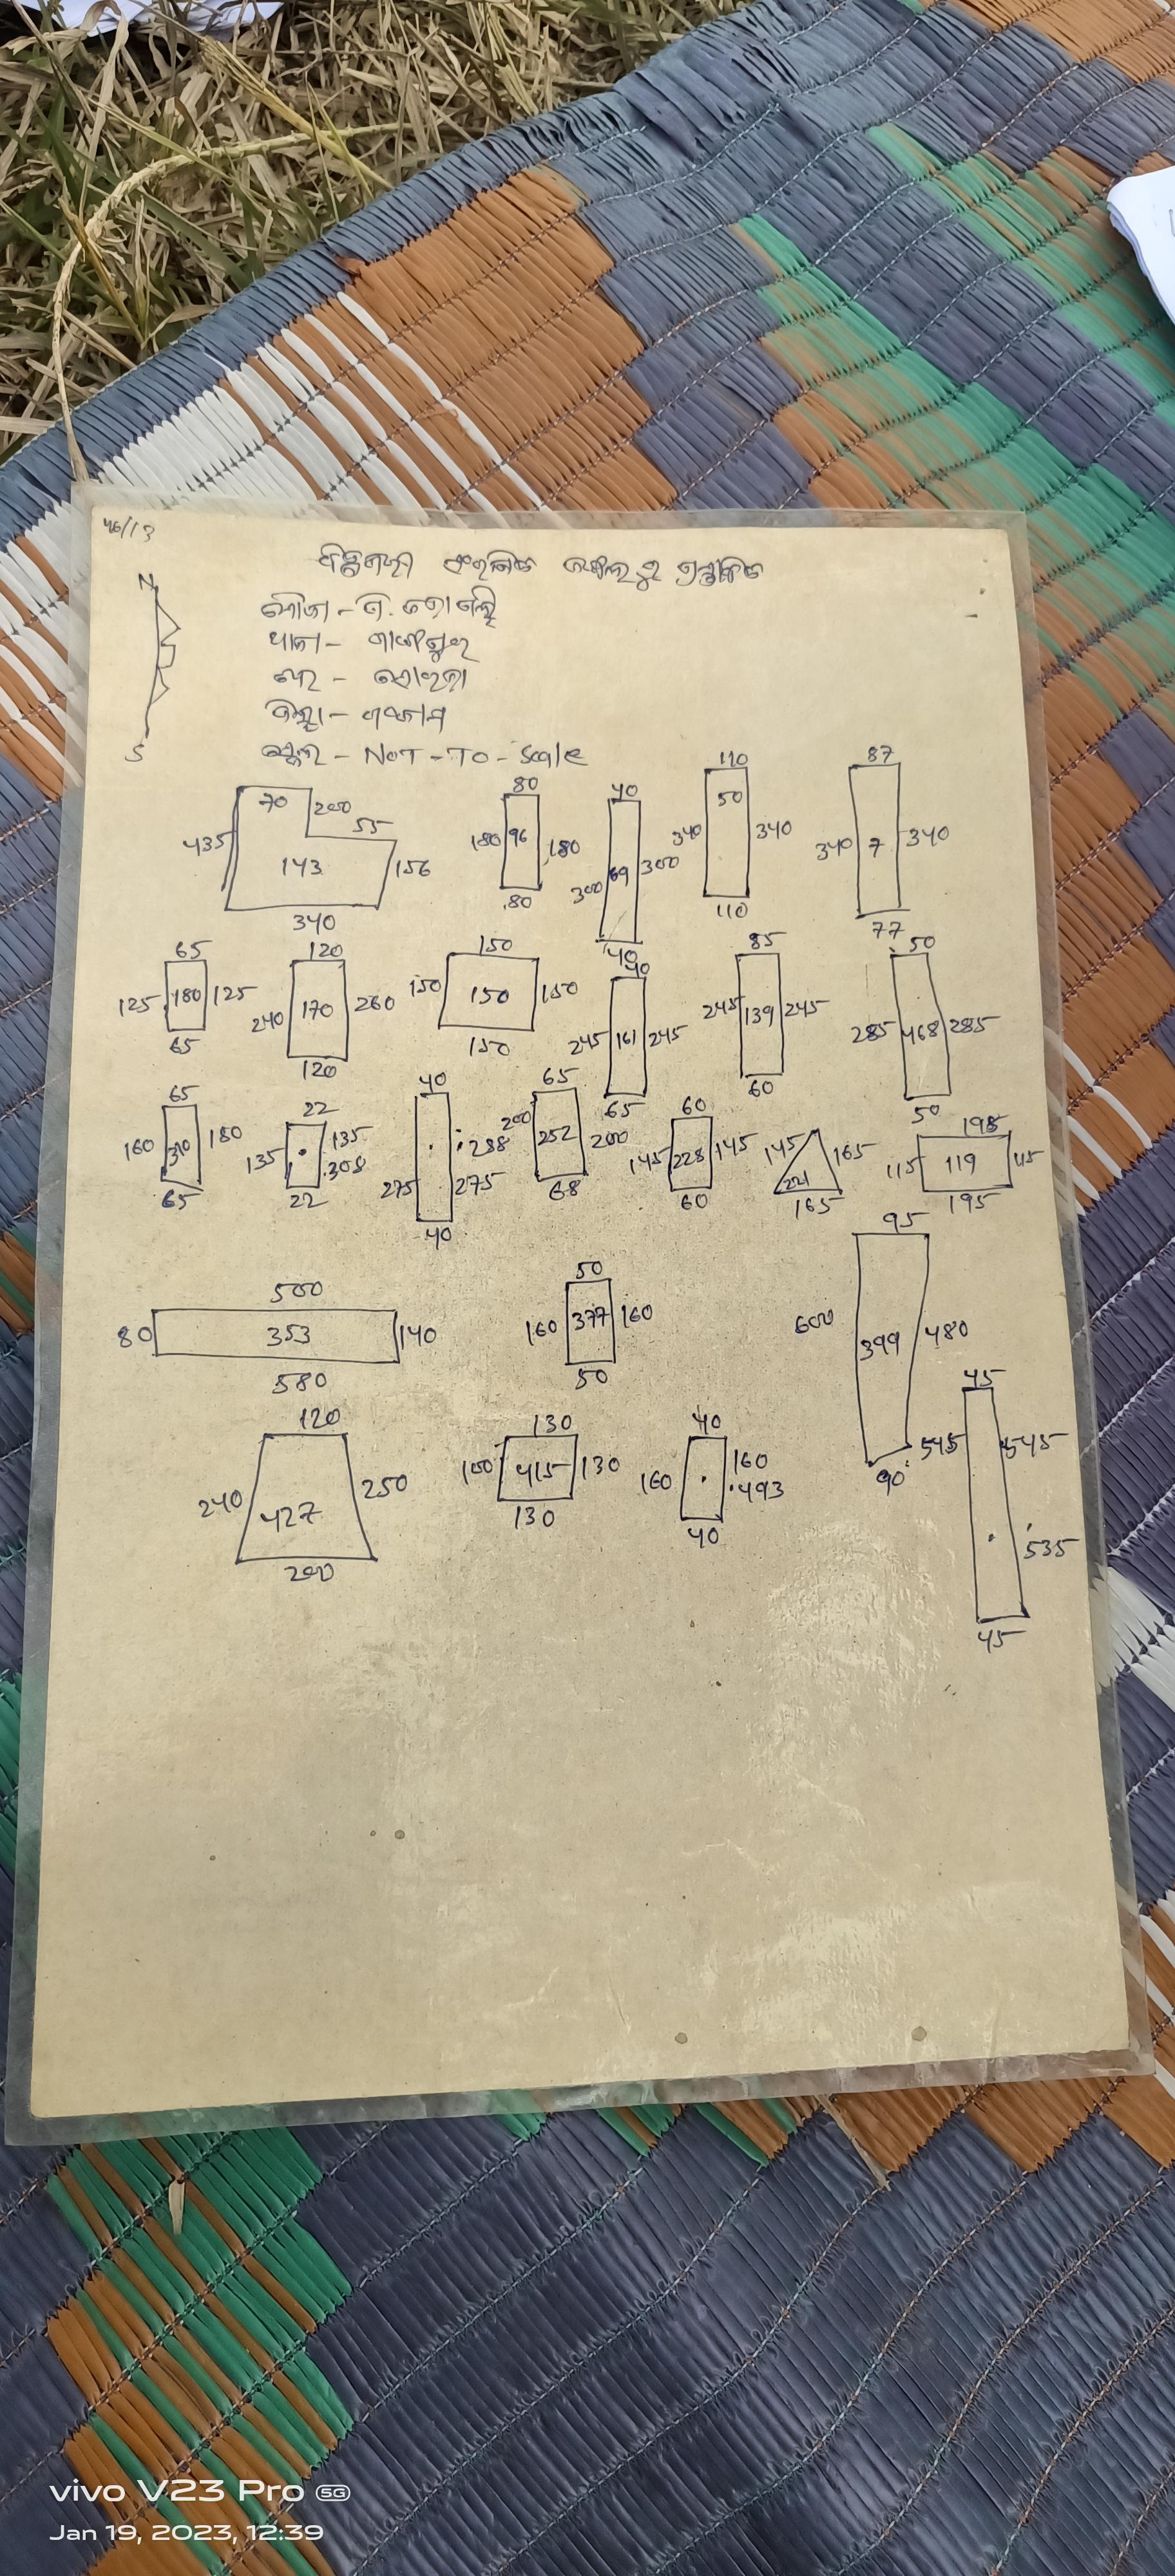 46/13
N
ମୌଜା -
ଥାନା -
ଜିଲ୍ଲା - ଗଞ୍ଜାମ
ସ୍କେଲ - NOT - TO - Scale
S
70 200 55 435 143 156 340
80 180 96 180 80
40 300 69 300 40
110 50 340 340 110
87 340 7 340 77
65 125 180 125 65
120 240 170 260 120
150 150 150 150 150
40 245 161 245 65
85 245 139 245 60
50 285 468 285 50
65 160 310 180 65
22 135 135 308 22
40 288 275 275 40
65 200 252 200 68
60 145 228 145 60
145 165 221 165
195 115 119 115 195
500 80 353 140 580
50 160 377 160 50
95 600 399 480 90
45 545 545 535 45
120 240 427 250 200
130 100 415 130 130
40 160 160 493 40
vivo V23 Pro 5G
Jan 19, 2023, 12:39